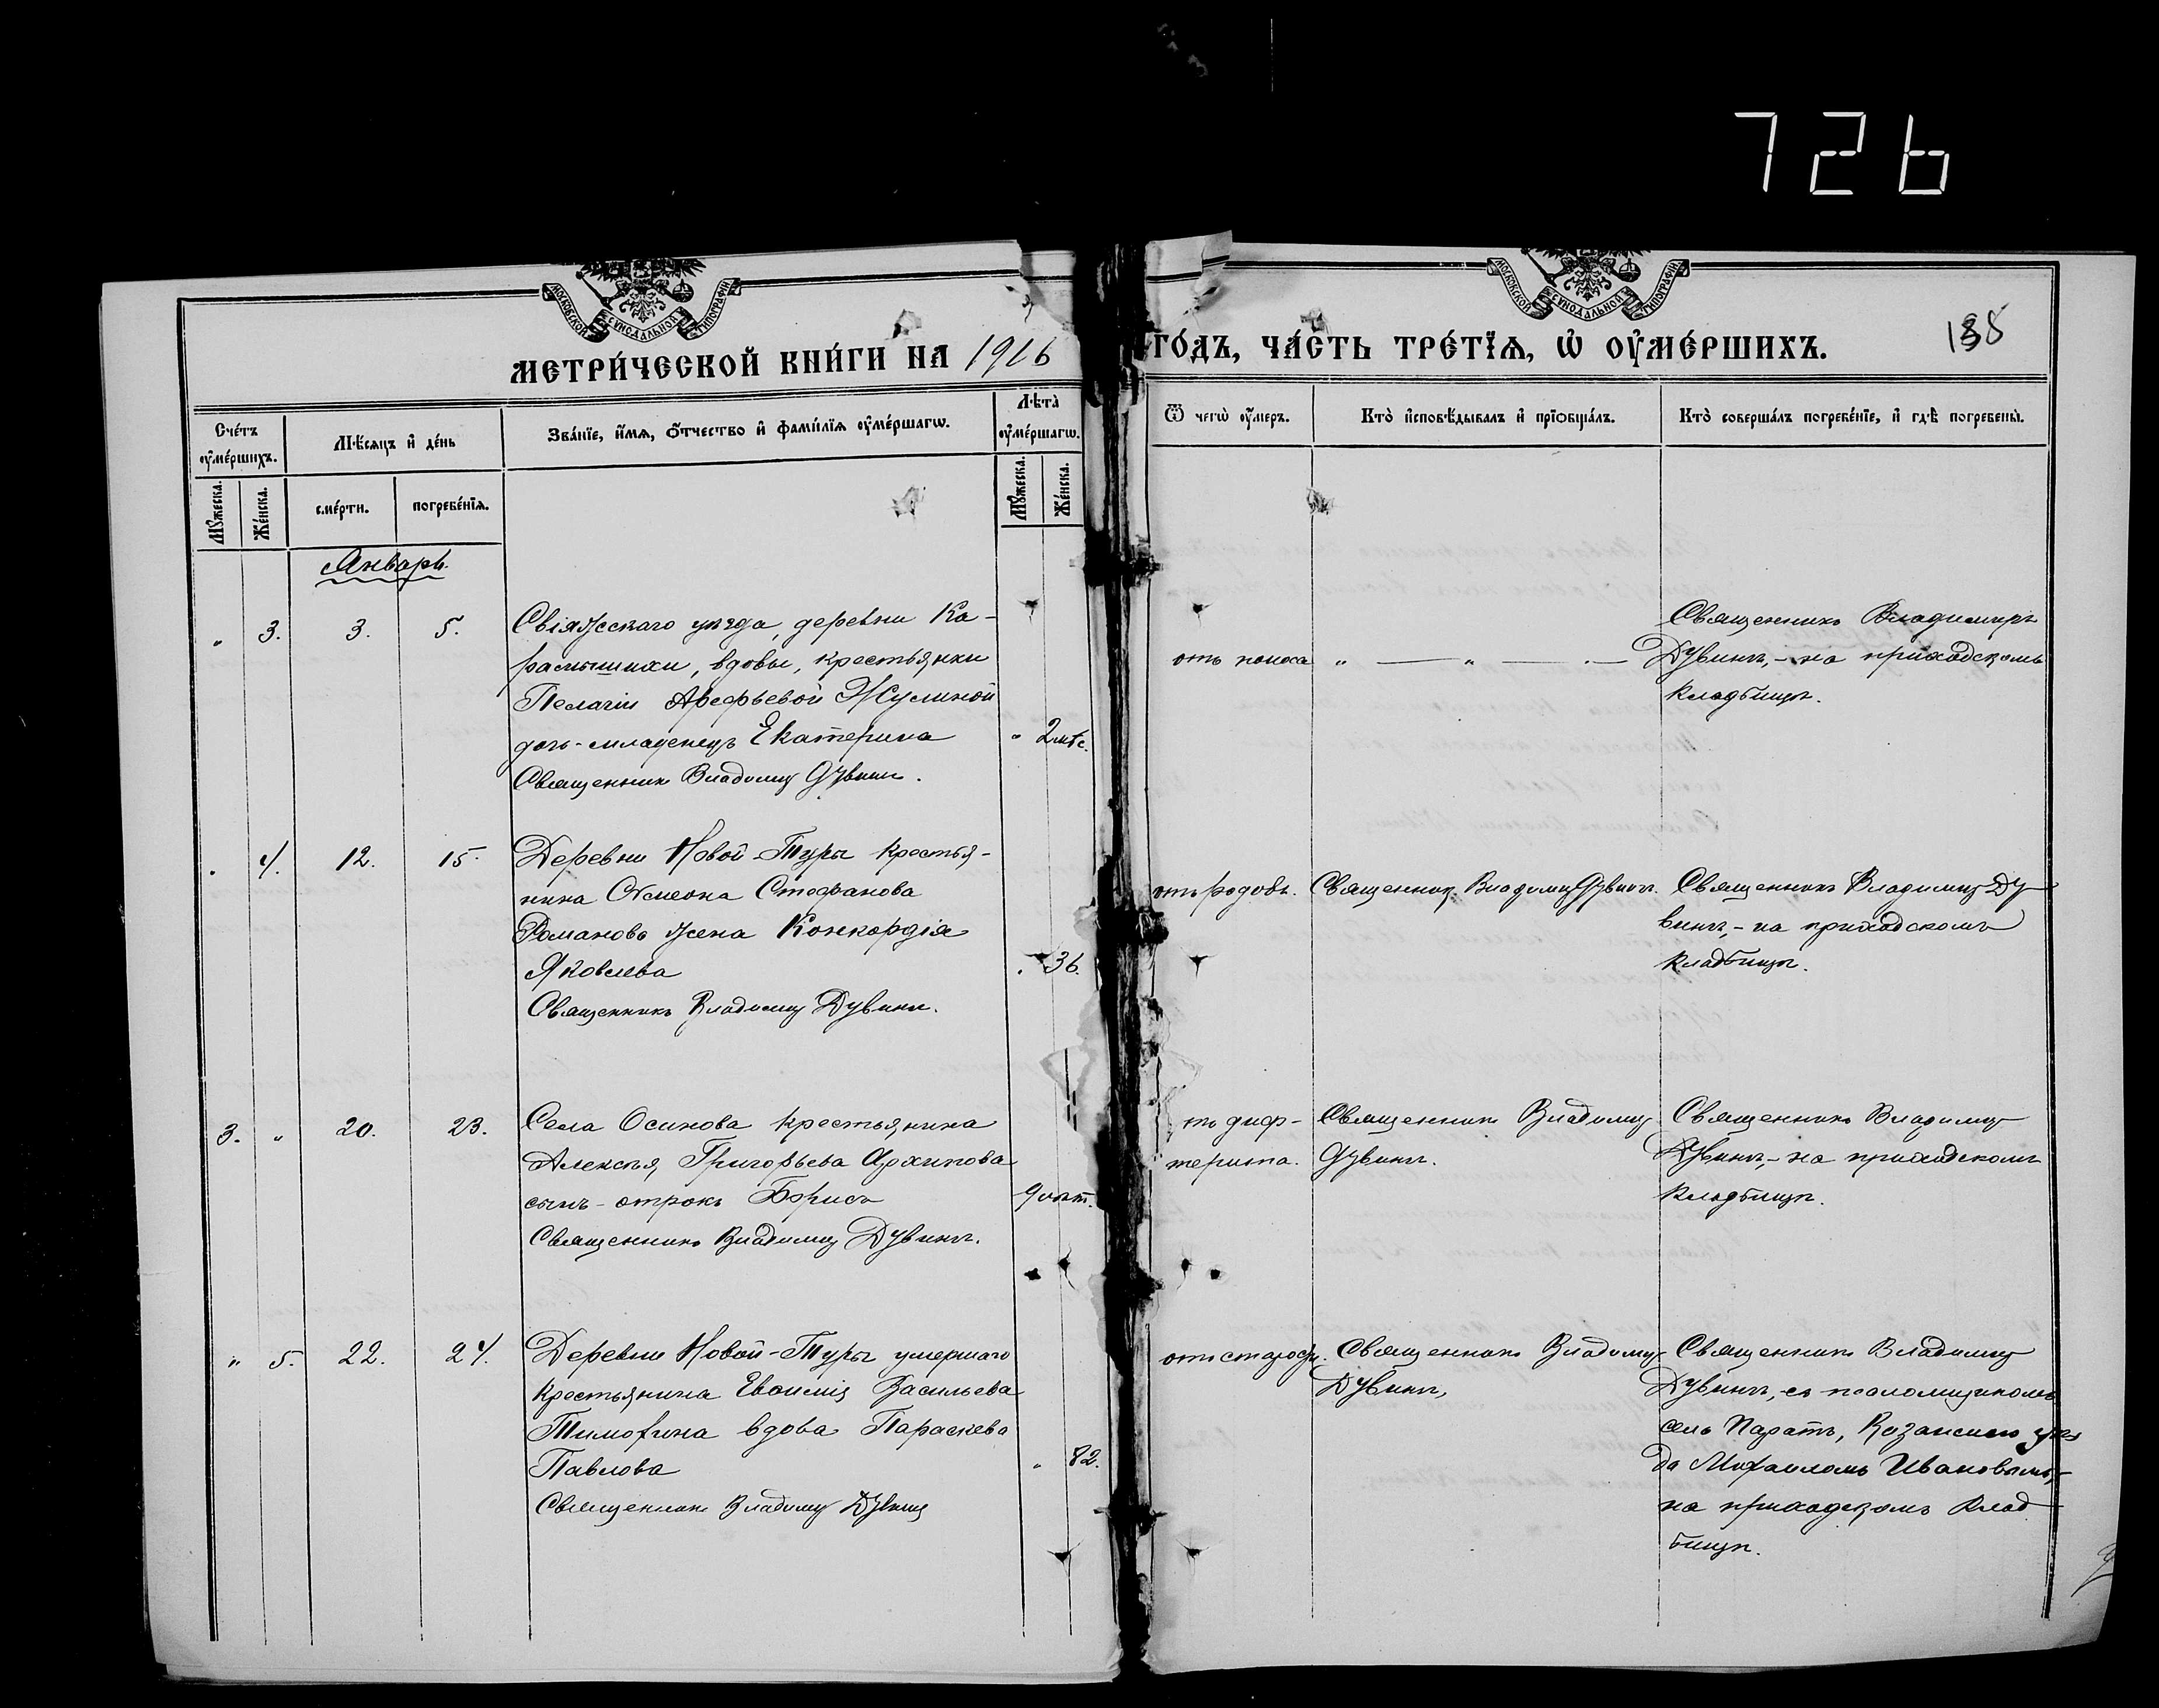 726
МОСКОВСКОЙ СѴНОДАЛЬНОЙ ТИПОГРАФІИ
МОСКОВСКОЙ СѴНОДАЛЬНОЙ ТИПОГРАФІИ
МЕТРИ́ЧЕСКОЙ КНИ́ГИ НА 1916
ГО́ДЪ, ЧА́СТЬ ТРЕ́ТЇѦ, Ѡ҆ ОУ҆МЕ́РШИХЪ.
188
Сче́тъ оу҆ме́ршихъ.
Мѣ́сѧцъ и҆ де́нь
Зва́нїе, и҆́мѧ, ѻ҆́тчество и҆ фами́лїѧ оу҆ме́ршагѡ.
Лѣ́та оу҆ме́ршагѡ.
Ѿ чегѡ̀ оу҆́меръ.
Кто̀ и҆сповѣ́дывалъ и҆ прїѡбща́лъ.
Кто̀ соверша́лъ погребе́нїе, и҆ гдѣ̀ погребены̀.
Мꙋ́жеска.
Же́нска.
сме́рти.
погребе́нїѧ.
Мꙋ́жеска.
Же́нска.
Январь.
" 3. 3. 5.
Свіяжскаго уѣзда, деревни Ка-
расимихи, вдовы, крестьянки
Пелагіи Арефьевой Жулиной
дочь-младенецъ Екатерина
" 2 мѣс.
Священник Владимір Дувинг.
отъ поноса
" — " — " —
Священникъ Владимиръ
Дувингъ,- на приходскомъ
кладбищѣ.
" 4. 12. 15.
Деревни Новой-Туры крестья-
нина Симеона Стефанова
Романова жена Конкордія
Яковлева
" 36.
Священникъ Владимір Дувинг.
отъ родовъ.
Священник Владимір Дувингъ.
Священникъ Владимір Ду-
вингъ,- на приходскомъ
кладбищѣ.
3. " 20. 23.
Села Осинова крестьянина
Алексѣя Григорьева Архипова
сынъ-отрокъ Борисъ
9 лѣт.
Священникъ Владимір Дувингъ.
тъ диф-
терита.
Священникъ Владимір
Дувингъ.
Священникъ Владимір
Дувингъ,- на приходскомъ
кладбищѣ.
" 5. 22. 24.
Деревни Новой-Туры умершаго
крестьянина Евѳимія Васильева
Тимоѳеева вдова Параскева
Павлова
" 82.
Священникъ Владимір Дувинг
отъ старости.
Священникъ Владимір
Дувингъ,
Священникъ Владимір
Дувингъ, съ псаломщикомъ
села Паратъ, Казанскаго уѣз
да Михаиломъ Ивановымъ,-
на приходскомъ клад-
бищѣ.